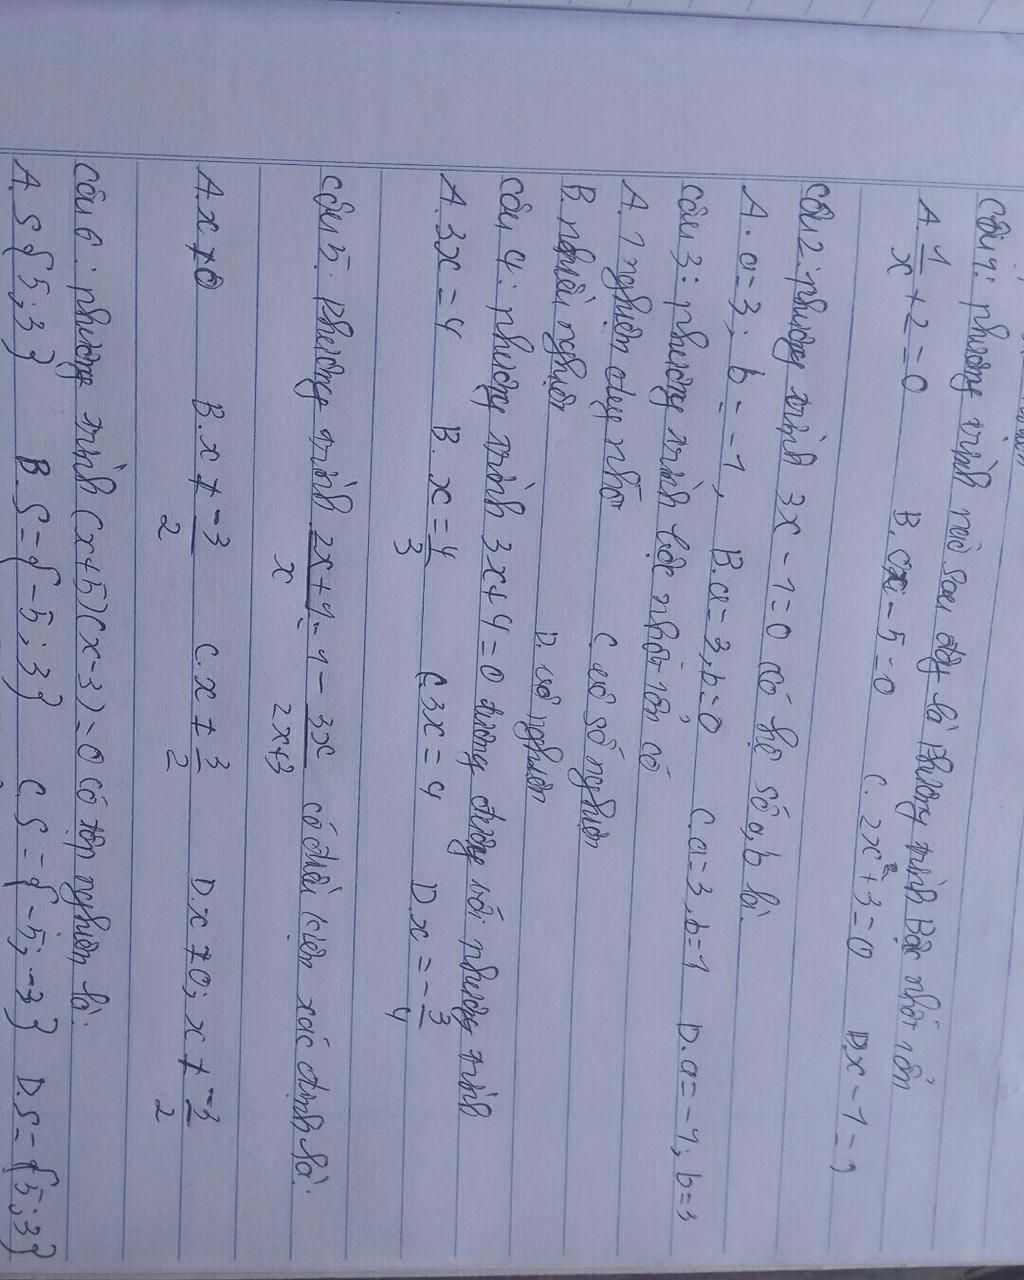 Câu 1: phương trình nào sau đây là Phương trình Bậc nhất 1 ẩn
A. 1/x + 2 = 0 B. - 5 = 0 C. 2x² + 3 = 0 D. x - 1 = 1
Câu 2: phương trình 3x - 1 = 0 có hệ số a, b là.
A. a = 3; b = -1, B. a = 3, b = 0 C. a = 3, b = 1 D. a = -1; b = 3
Câu 3: phương trình bậc nhất 1 ẩn có
A. 1 nghiệm duy nhất C. vô số nghiệm
B. nghiệm D. vô nghiệm
Câu 4: phương trình 3x + 4 = 0 tương đương với phương trình
A. 3x = 4 B. x = 4/3 C. 3x = 4 D. x = -3/4
Câu 5: phương trình (2x+1)/x = 1 - 3x/(2x+3) có điều kiện xác định là:
A. x ≠ 0 B. x ≠ -3/2 C. x ≠ 3/2 D. x ≠ 0; x ≠ -3/2
Câu 6: phương trình (x+5)(x-3) = 0 có tập nghiệm là:
A. S {5; 3} B. S = {-5; 3} C. S = {-5; -3} D. S = {5; 3}